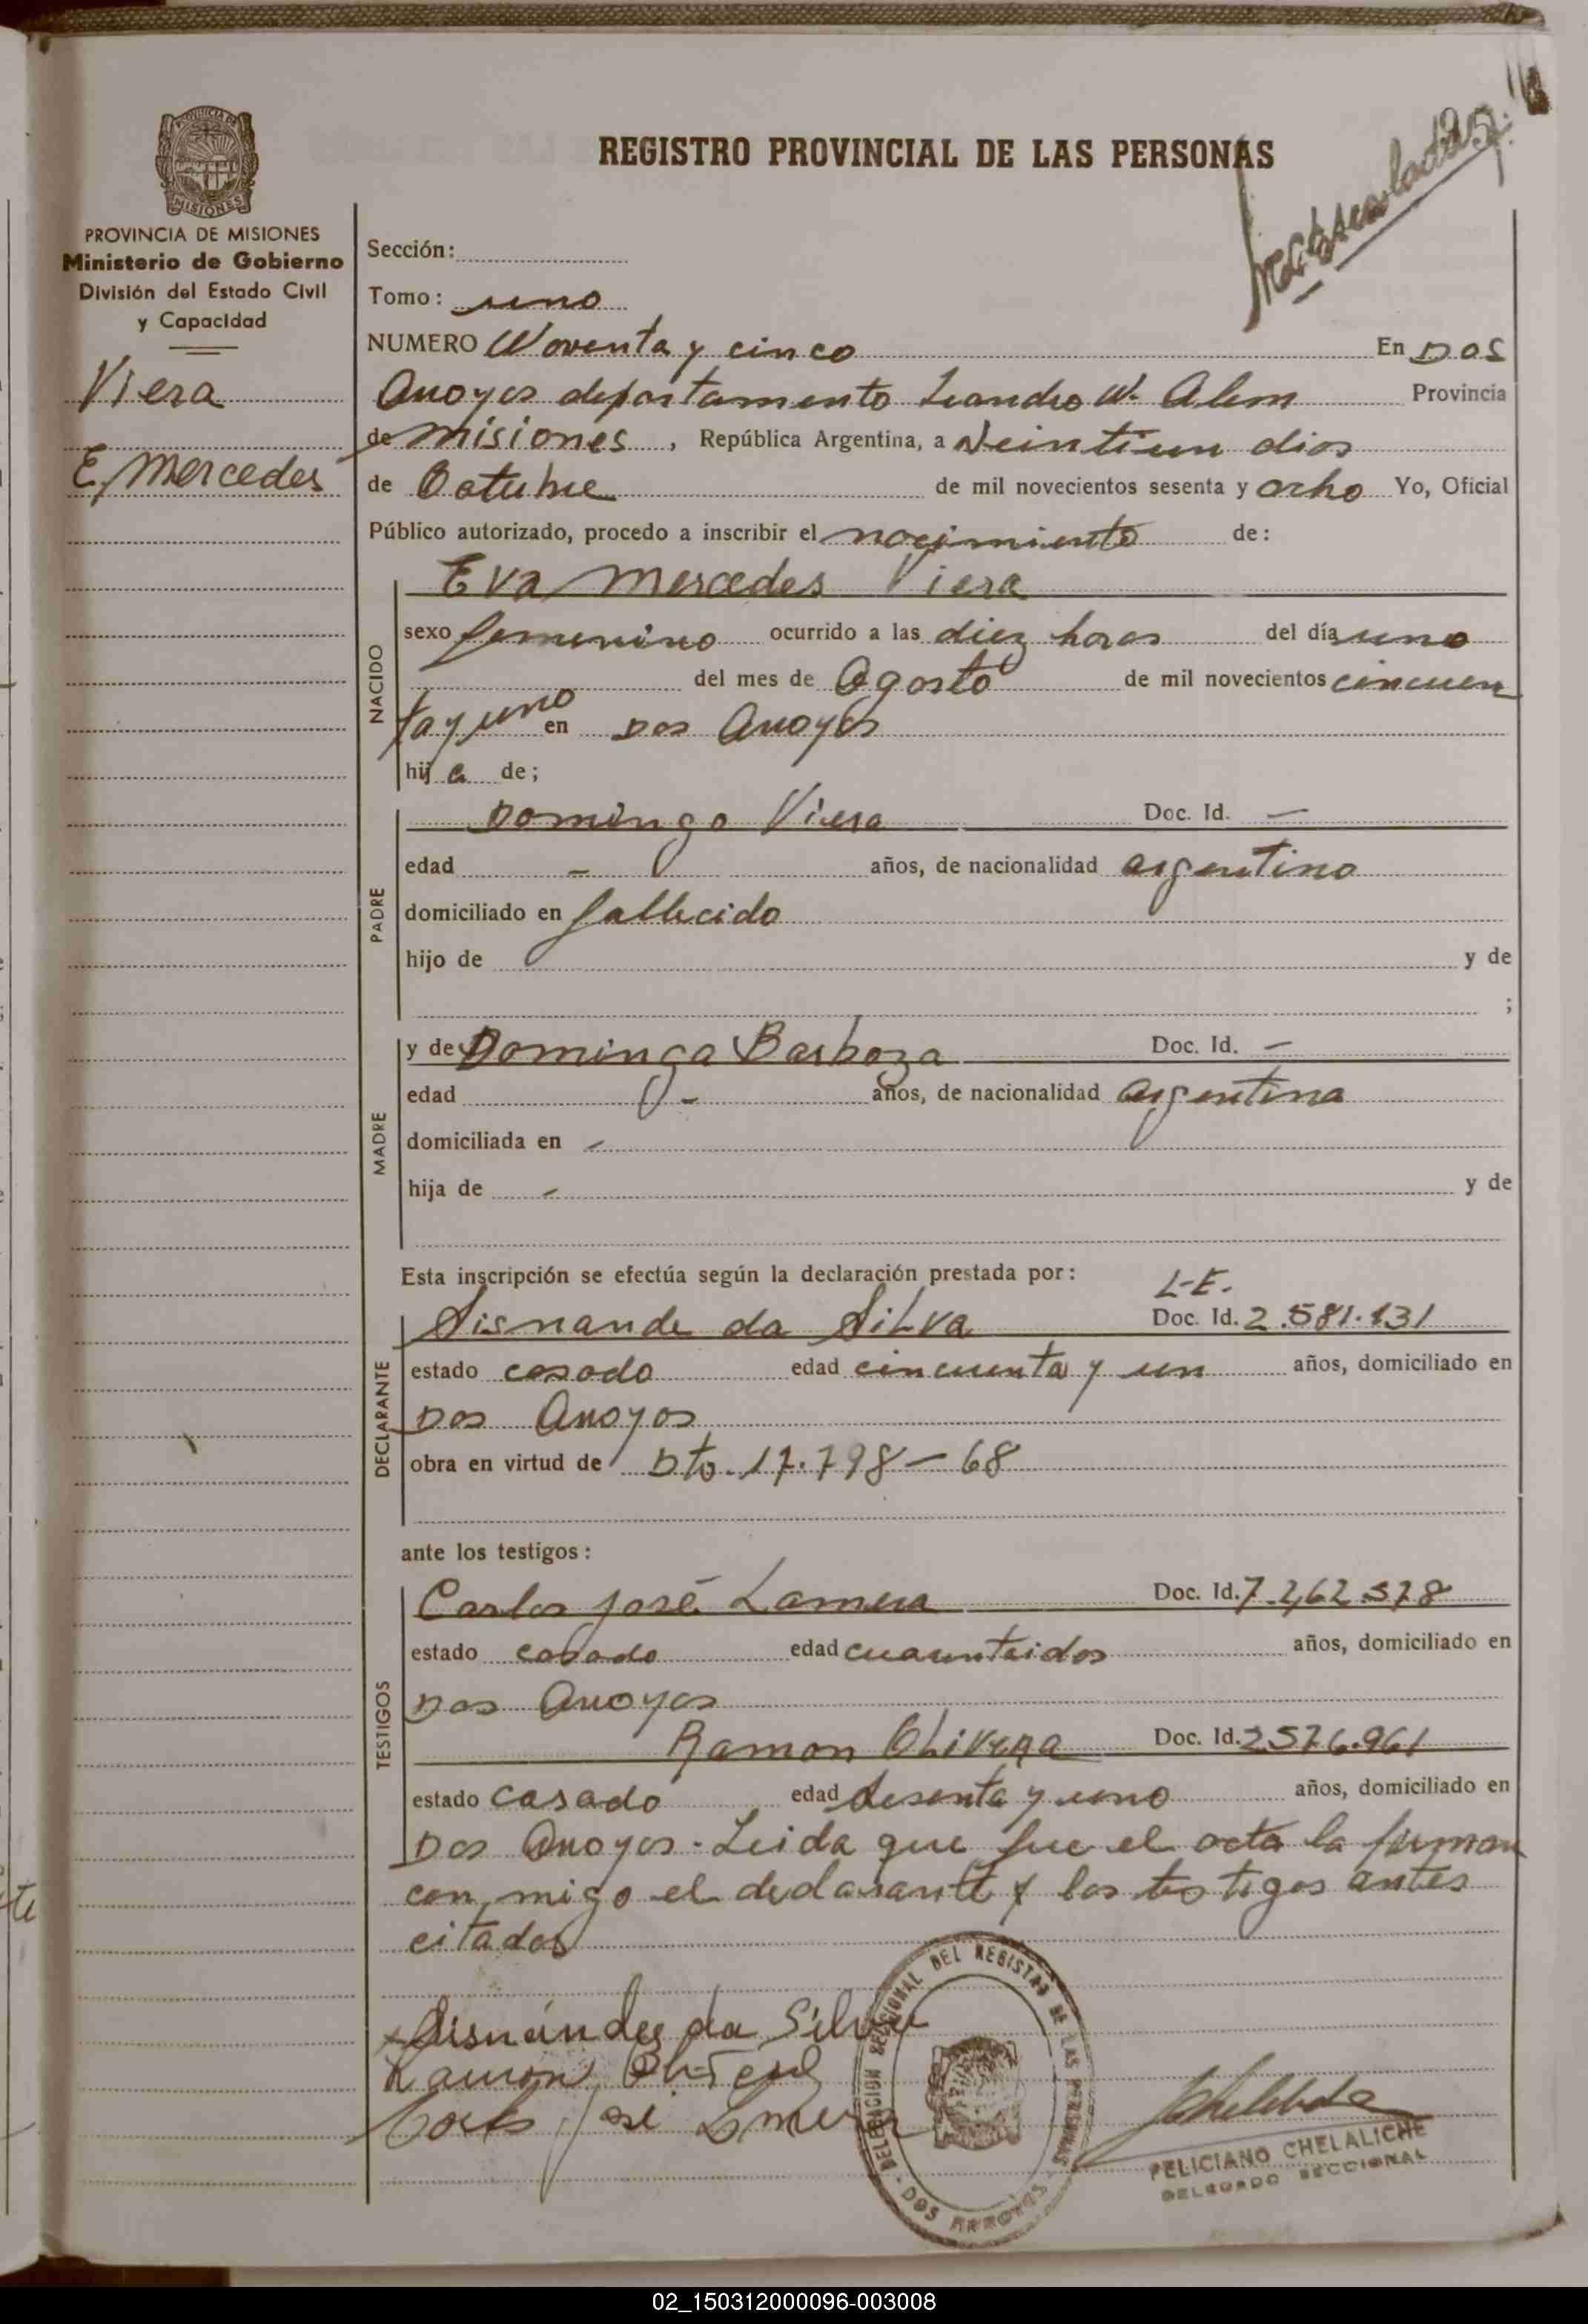 REGISTRO PROVINCIAL DE LAS PERSONAS
PROVINCIA DE
MISIONES
PROVINCIA DE MISIONES
Ministerio de Gobierno
División del Estado Civil
y Capacidad
Viera
E, Mercedes
Sección:
Tomo: uno
NUMERO Noventa y cinco En Dos
Arroyos departamento Leandro N. Alem Provincia
de Misiones, República Argentina, a Veintiun dias
de Octubre de mil novecientos sesenta y ocho Yo, Oficial
Público autorizado, procedo a inscribir el nacimiento de:
Eva Mercedes Viera
NACIDO
sexo femenino ocurrido a las diez horas del día uno
del mes de Agosto de mil novecientos cincuen
ta y uno en Dos Arroyos
hija de;
PADRE
Domingo Viera Doc. Id. —
edad - años, de nacionalidad argentino
domiciliado en fallecido
hijo de y de
;
MADRE
y de Dominga Barboza Doc. Id. —
edad - años, de nacionalidad argentina
domiciliada en -
hija de - y de
Esta inscripción se efectúa según la declaración prestada por:
L-E.
DECLARANTE
Sisnande da Silva Doc. Id. 2.581.131
estado casado edad cincuenta y un años, domiciliado en
Dos Arroyos
obra en virtud de Dto. 17.798-68
ante los testigos:
TESTIGOS
Carlos José Lamera Doc. Id. 7.262.578
estado casado edad cuarentaidos años, domiciliado en
Dos Arroyos
Ramon Olivera Doc. Id. 2576.961
estado casado edad sesenta y uno años, domiciliado en
Dos Arroyos - Leida que fue el acta la firman
con migo el declarante y los testigos antes
citados
Sisnándes da Silva
Ramon
Carlos José
DELEGACION SECCIONAL DEL REGISTRO DE LAS PERSONAS - DOS ARROYOS -
FELICIANO CHELALICHE
DELEGADO SECCIONAL
02_150312000096-003008